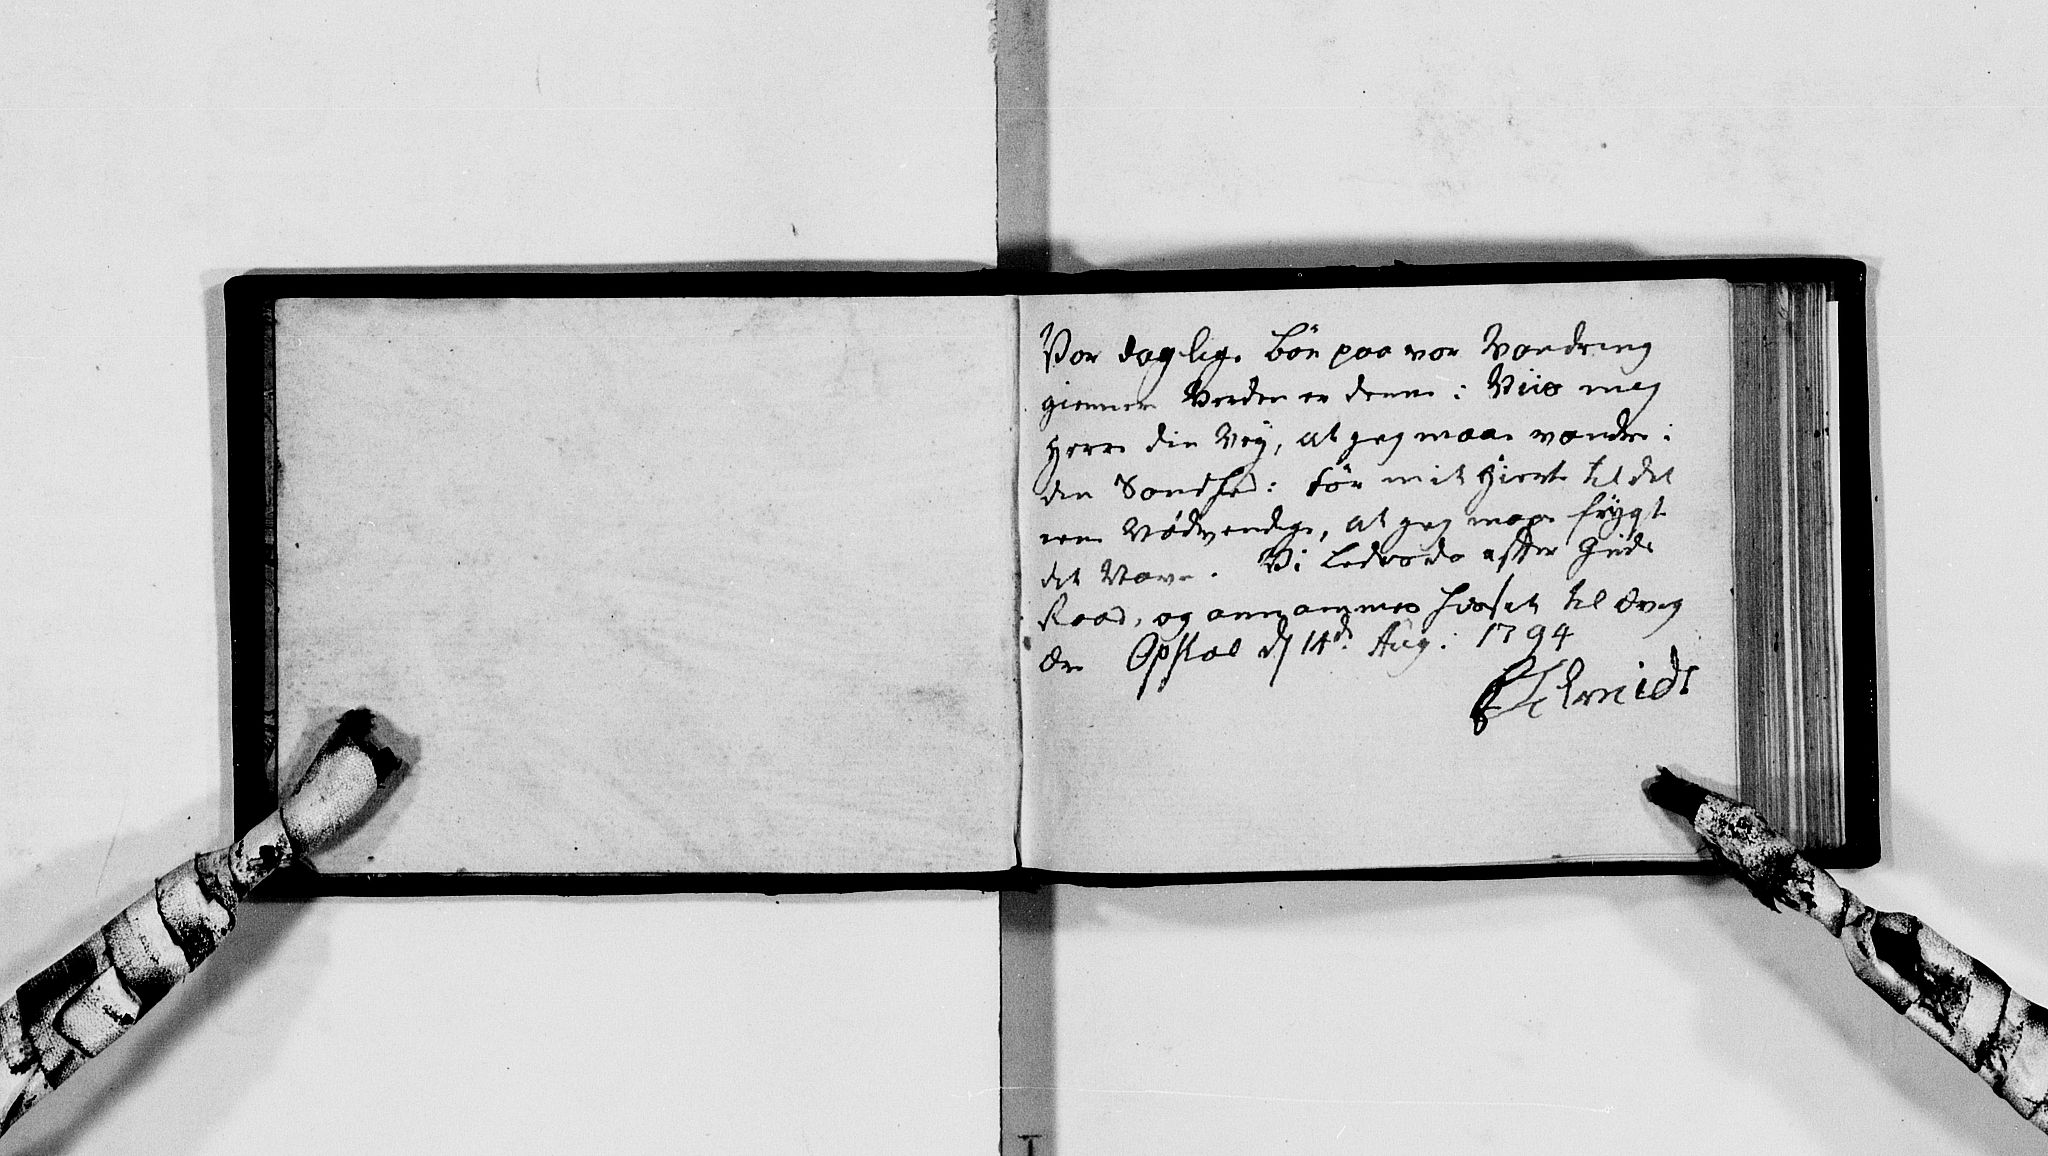 Vor daglige Bön paa vor Vandring
giennem Verden er denne: Viis mig
Herre din Vey, at jeg maae vandre i
din Sandhed: för mit Hierte til det
ene Nödvendige, at jeg maae frygte
dit Navn. Vi Ledsedes efter Guds
Raad, og annammes sidst til Ærig
Ære Opstal d 14de Aug: 1794
Schmidt
I